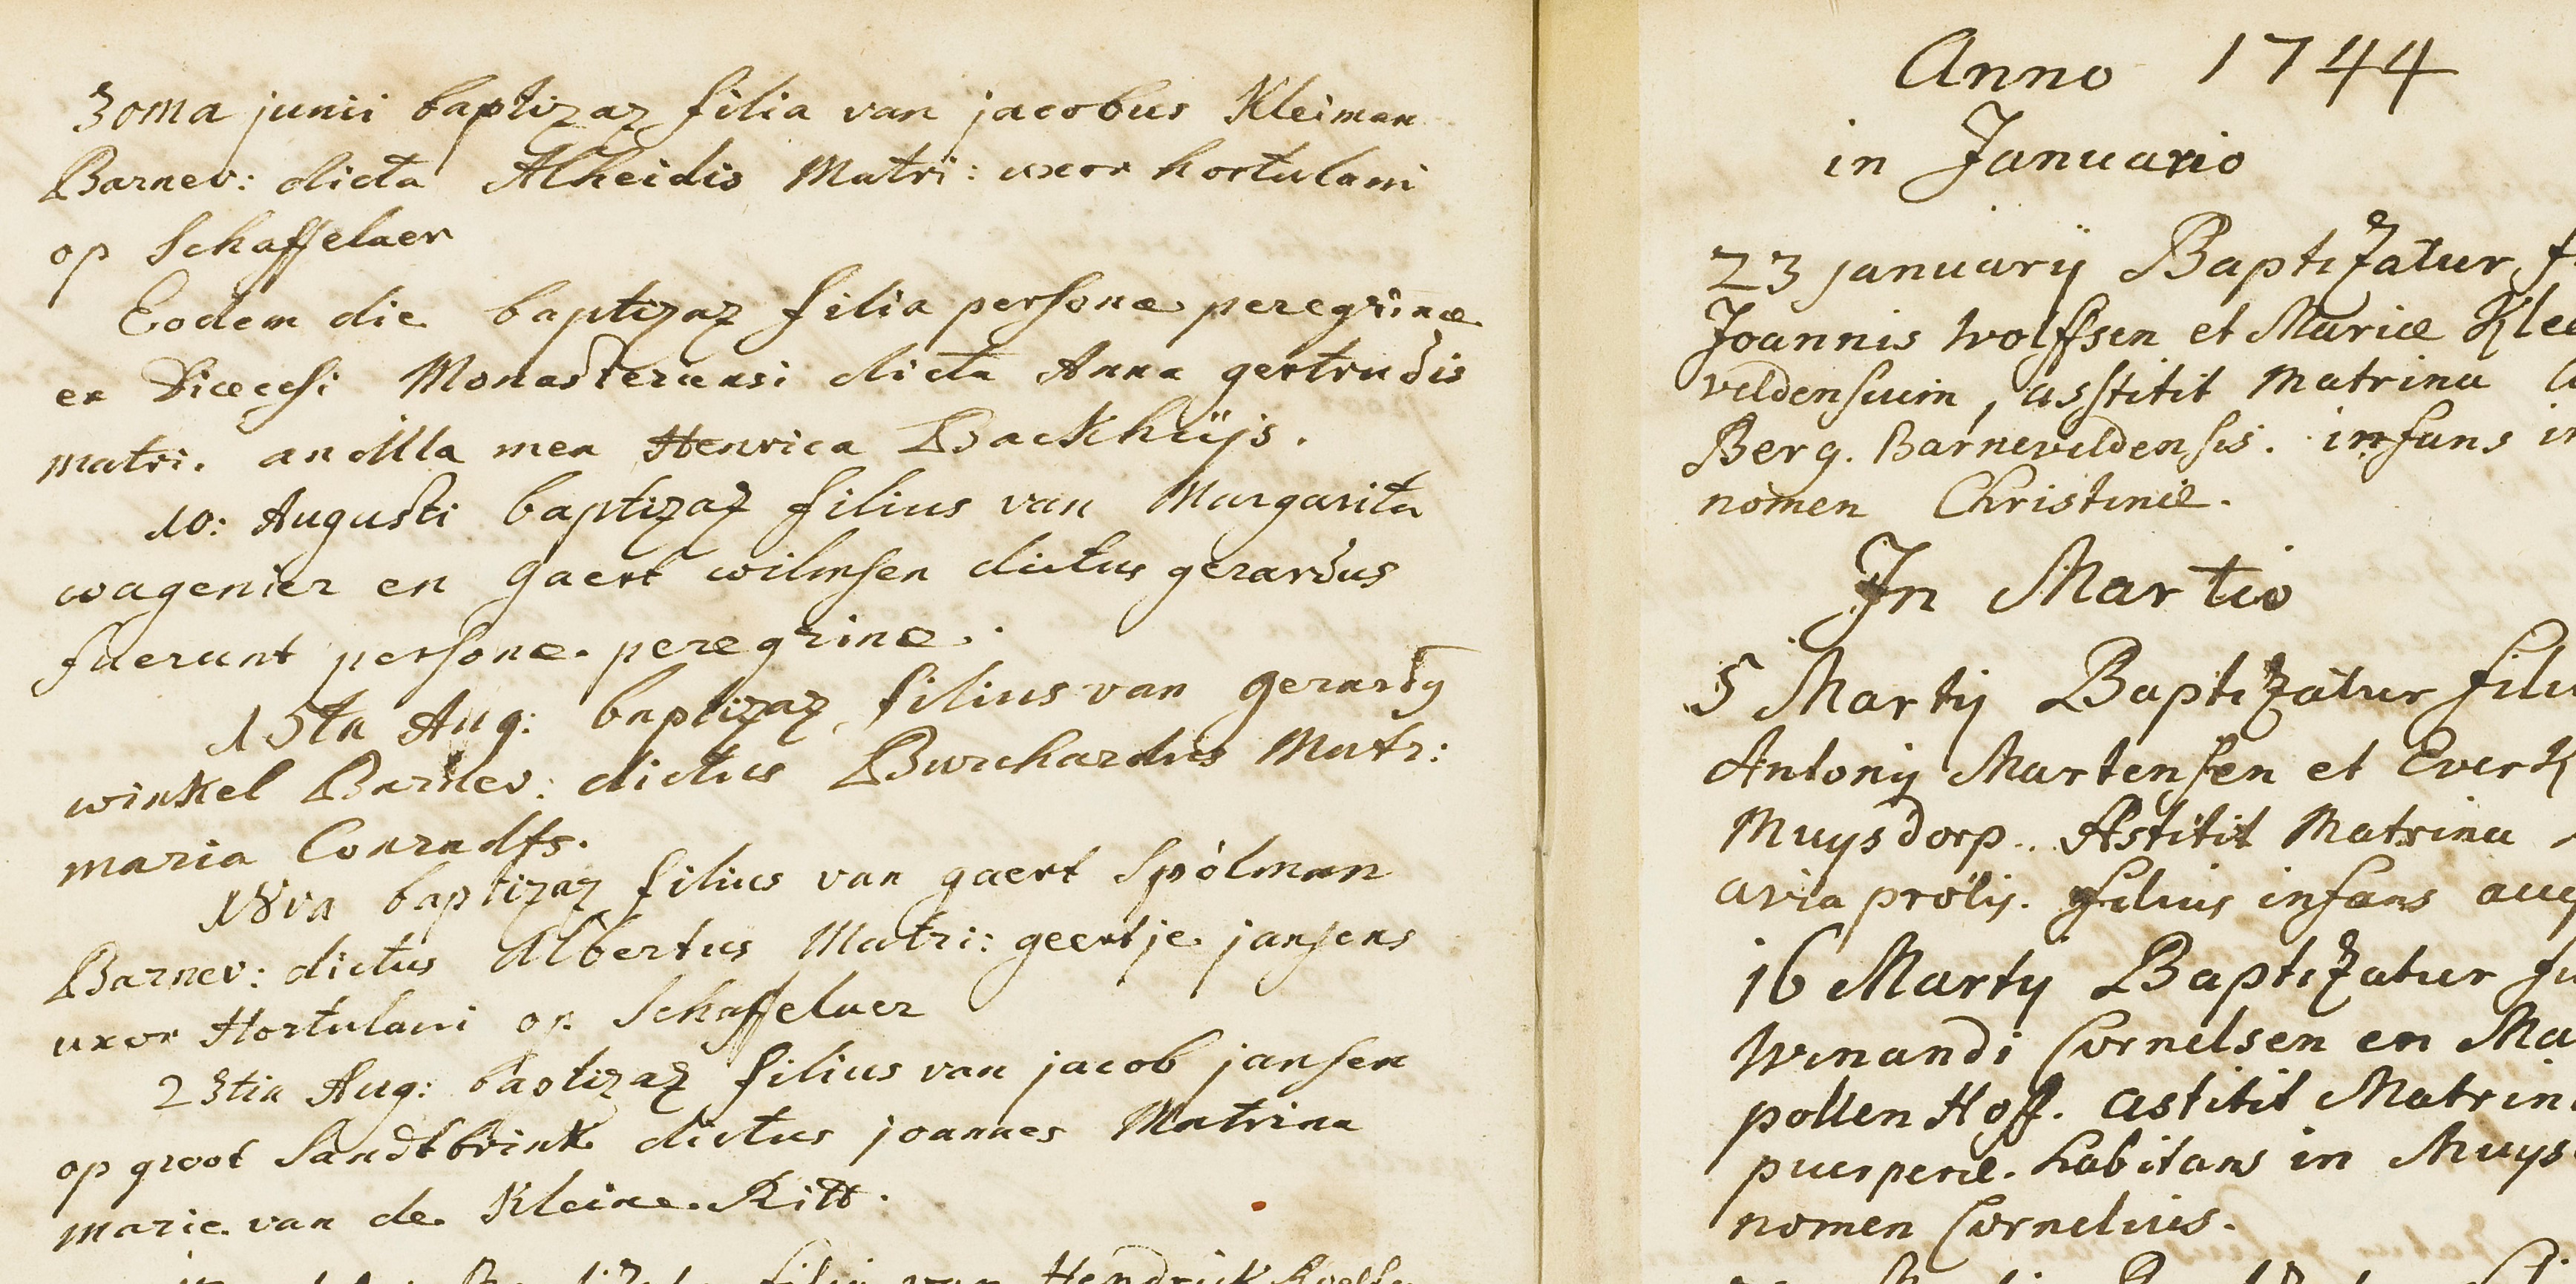 30ma junii baptizaz filia van jacobus Kleiman
Barnev: dicta Alheidis Matri: uxor hortulani
op Schaffelaer
Eodem die baptizaz filia personæ peregrinæ
ex Diœcesi Monasteriensi dicta Anna gertrudis
matri. ancilla mea Henrica Backhüijs.
10: Augusti baptizaz filius van Margarita
wagenier en gaert wilmsen dictus gerardus
fuerunt personæ peregrinæ.
15ta Aug: baptizaz filius van gerardy
winkel Barnev: dictus Burchardus Matr:
maria Conradts.
18va baptizaz filius van gaert Spólman
Barnev: dictus Albertus Matri: geertje jansens
uxor Hortulani op Schaffelaer
23tia Aug: baptizaz filius van jacob jansen
op groot Sandtbrink dictus joannes Matrina
marie van de Kleine Ritt.
filia van Hendrick
Anno 1744
in Januario
23 januarij Baptizatur
Joannis Wolffsen et Mariæ
veldensium, asstitit Matrina
Berg. Barneveldensis. infans
nomen Christinæ.
In Martio
5 Martij Baptizatur
Antonij Martensen et
Muysdorp. Astitit Matrina
avia prolis. filius infans
16 Martij Baptizatur
Winandi Cornelsen en
pollen Hoff. astitit
puerperæ. habitans in
nomen Cornelius.